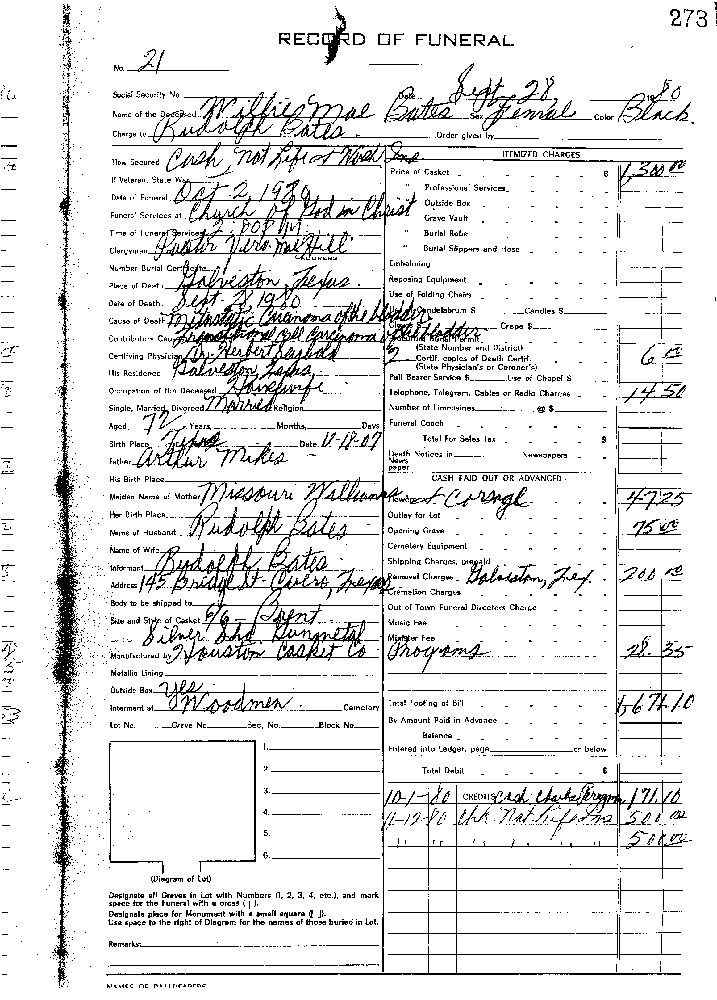 273
RECORD OF FUNERAL
No. 21
Social Security No. Date Sept. 28 1980
Name of the Deceased Willie Mae Bates Sex Female Color Black
Charge to Rudolph Bates. Order given by
How Secured Cash, Nat Life & Wood Ins
If Veteran, State War
Date of Funeral Oct 2, 1980
Funeral Services at Church of God in Christ
Time of Funeral Services 2:00 P.M.
Clergyman Pastor Vera Mae Hill
ADDRESS
Number Burial Certificate
Place of Death Galveston, Texas.
Date of Death Sept. 28, 1980
Cause of Death Metastatic Carcinoma of the bladder
Contributory Cause Transitional cell carcinoma of bladder
Certifying Physician Dr. Herbert
His Residence Galveston, Texas,
Occupation of the Deceased Housewife
Single, Married, Divorced Married Religion
Aged 72 Years, Months, Days
Birth Place Texas Date 11-18-07
Father Arthur Mikes
His Birth Place
Maiden Name of Mother Missouri Williams
Her Birth Place
Name of Husband Rudolph Bates
Name of Wife
Informant Rudolph Bates
Address 145 Bridge St- Cuero, Texas
Body to be shipped to
Size and Style of Casket 6/6 - Brent
Silver Shd Gunmetal
Manufactured by Houston Casket Co
Metallic Lining
Outside Box Yes
Interment at Woodmen Cemetery
Lot No. Grave No. Sec. No. Block No.
1.
2.
3.
4.
5.
6.
(Diagram of Lot)
Designate all Graves in Lot with Numbers (1, 2, 3, 4, etc.), and mark
space for the Funeral with a cross ( ).
Designate place for Monument with a small square ( ).
Use space to the right of Diagram for the names of those buried in Lot.
Remarks:
NAMES OF PALLBEARERS
ITEMIZED CHARGES
Price of Casket $ 1,300 00
" Professional Services
" Outside Box
" Grave Vault
" Burial Robe
" Burial Slippers and Hose
Embalming
Reposing Equipment
Use of Folding Chairs
Candelabrum $ Candles $
Crepe $
(State Number and District)
2 Certif. copies of Death Certif. 6 00
(State Physician's or Coroner's)
Pall Bearer Service $ Use of Chapel $
Telephone, Telegram, Cables or Radio Charges 14 50
Number of Limousines @ $
Funeral Coach
Total For Sales Tax $
Death Notices in Newspapers
News
paper
CASH PAID OUT OR ADVANCED
Flowers & Corsage 47 25
Outlay for Lot
Opening Grave 75 00
Cemetery Equipment
Shipping Charges, prepaid
Removal Charges Galveston, Tex. 200 00
Cremation Charges
Out of Town Funeral Directors Charge
Music Fee
Minister Fee
Programs 28.35
Total Footing of Bill 1,671.10
By Amount Paid in Advance
Balance
Entered into Ledger, page or below
Total Debit $
10-1-80 CREDITS Cash 171.10
11-12-80 Chk Nat Life Ins 500 00
" " " " 500.00